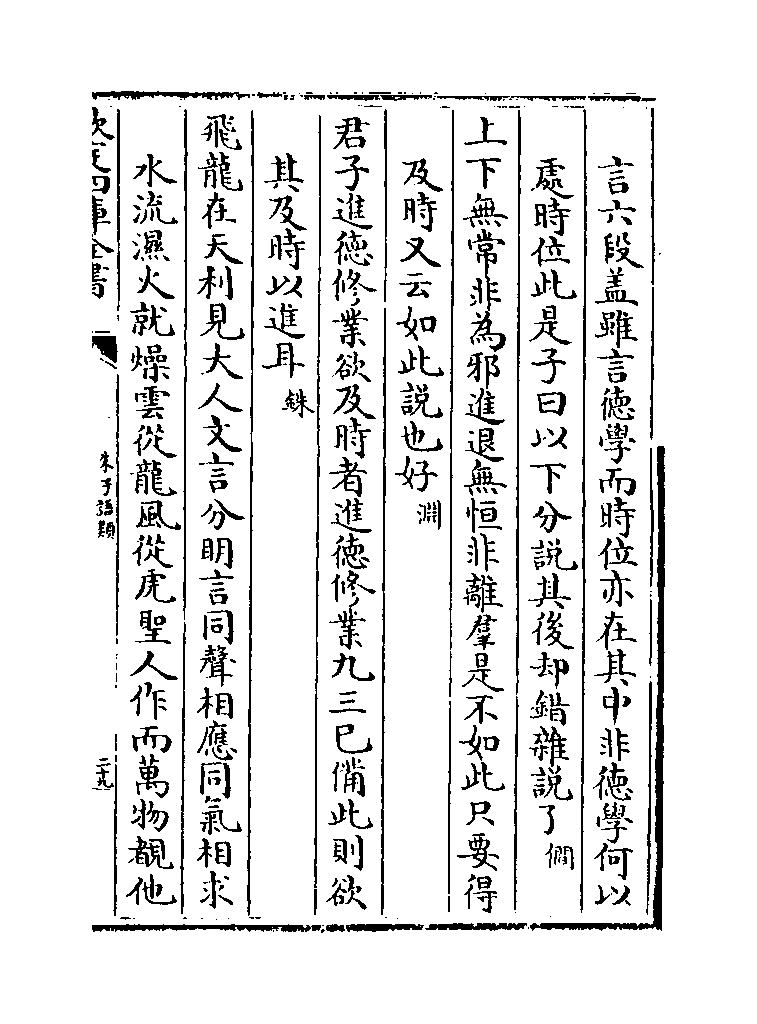 言六段盖雖言德學而時位亦在其中非德學何以
處時位此是子曰以下分説其後却錯雜説了僩
上下無常非為邪進退無恒非離羣是不如此只要得
及時又云如此説也好淵
君子進德修業欲及時者進德修業九三已備此則欲
其及時以進耳銖
飛龍在天利見大人文言分明言同聲相應同氣相求
水流濕火就燥雲從龍風從虎聖人作而萬物覩他
欽定四庫全書
朱子語類
二十九